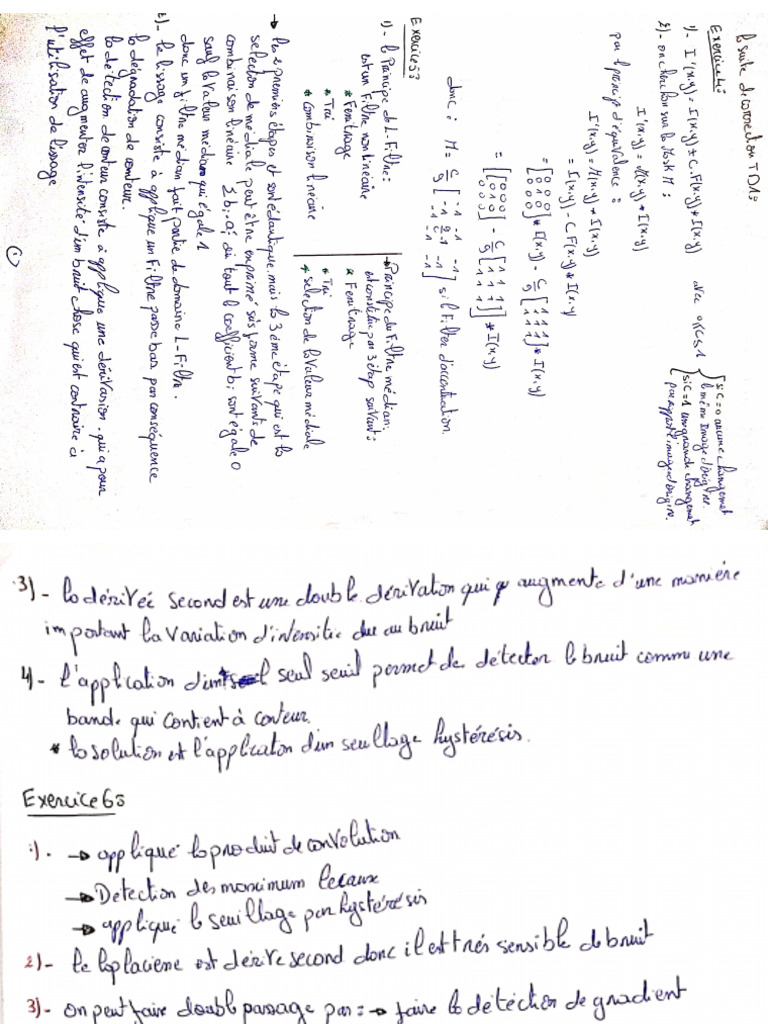 la suite de correction TD1:
Exercice 4:
1)- I'(x,y) = I(x,y) ± C.F(x,y) * I(x,y) avec 0≤C≤1 { si c=0 aucune changement
le même Image d'origine.
si c=1 un grande changement
par apport image d'origine.
2)- on cherche sur la Mask M :
I'(x,y) = M(x,y) * I(x,y)
par le princip d'équivalence :
I'(x,y) = M(x,y) * I(x,y)
= I(x,y) - C F(x,y) * I(x,y)
= [0 0 0
0 1 0
0 0 0] * I(x,y) - C/9 [1 1 1
1 1 1
1 1 1] * I(x,y)
= [[0 0 0
0 1 0
0 0 0] - C/9 [1 1 1
1 1 1
1 1 1]] * I(x,y)
donc : M = C/9 [-1 -1 -1
-1 9/C-1 -1
-1 -1 -1] si Filtre d'accentuation.
Exercice 5:
1)- le Principe de L-Filtre:
est un Filtre non linéaire
* Fenitrage
* Tri
* Combinaison linéaire
→ Principe du Filtre médian:
et constitue par 3 étap suivant:
* Fenitrage
* Tri
* selection de la Valeur médiale
→ les 2 premières étapes et sont édantique, mais la 3 éme étape qui est la
selection de médiale peut être exprimé sous forme suivants de
combinaison linéaire Σ bi . ai où tout le coefficient bi sont égale 0
sauf la Valeur médiane qui égale 1
donc un filtre médian fait partie de domaine L-Filtre.
2)- le lissage consiste à applique un Filtre passe bas par conséquence
la dégradation de conteur.
la détection de conteur consiste à applique une dérivasion. qui a pour
effet de augmenter l'intensité d'im bruit chose qui est contraire à
l'utilisation de lissage
1
3)- la dérivée second est une double dérivation qui augmente d'une manière
important la Variation d'intensitie du au bruit
4)- l'application d'un seul seuil permet de détecter le bruit comme une
bande qui Contient à conteur.
* la solution est l'application d'un seuillage hystérésis.
Exercice 6:
1). → appliqué la produit de convolution
→ Detection des maximum locaux
→ appliqué le seuillage par hystérésis
2)- le laplacième est dérive second donc il est trés sensible de bruit
3)- on peut faire double passage par: → faire la détéction de gradient